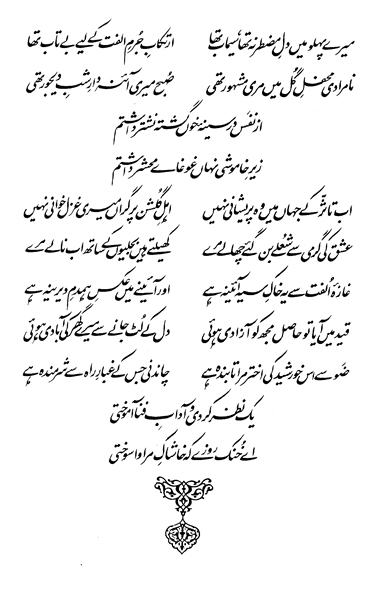 میرے پہلو میں دلِ مضطر نہ تھا، سیماب تھا ارتکابِ جُرمِ الفت کے لیے بے تاب تھا
نامرادی محفلِ گُل میں مری مشہور تھی صُبح میری آئنہ دارِ شبِ دیجور تھی
از نفَس در سینۂ خوں گشتہ نشتر داشتم
زیرِ خاموشی نہاں غوغائے محشر داشتم
اب تاثّر کے جہاں میں وہ پریشانی نہیں اہلِ گُلشن پر گراں میری غزل خوانی نہیں
عشق کی گرمی سے شُعلے بن گئے چھالے مرے کھیلتے ہیں بجلیوں کے ساتھ اب نالے مرے
غازۂ اُلفت سے یہ خاکِ سیہ آئینہ ہے اور آئینے میں عکسِ ہمدمِ دیرینہ ہے
قید میں آیا تو حاصل مجھ کو آزادی ہوئی دل کے لُٹ جانے سے میرے گھر کی آبادی ہوئی
ضَو سے اس خورشید کی اختر مرا تابندہ ہے چاندنی جس کے غبارِ راہ سے شرمندہ ہے
یک نظر کردی و آدابِ فنا آموختی
اے خُنک روزے کہ خاشاکِ مرا واسوختی